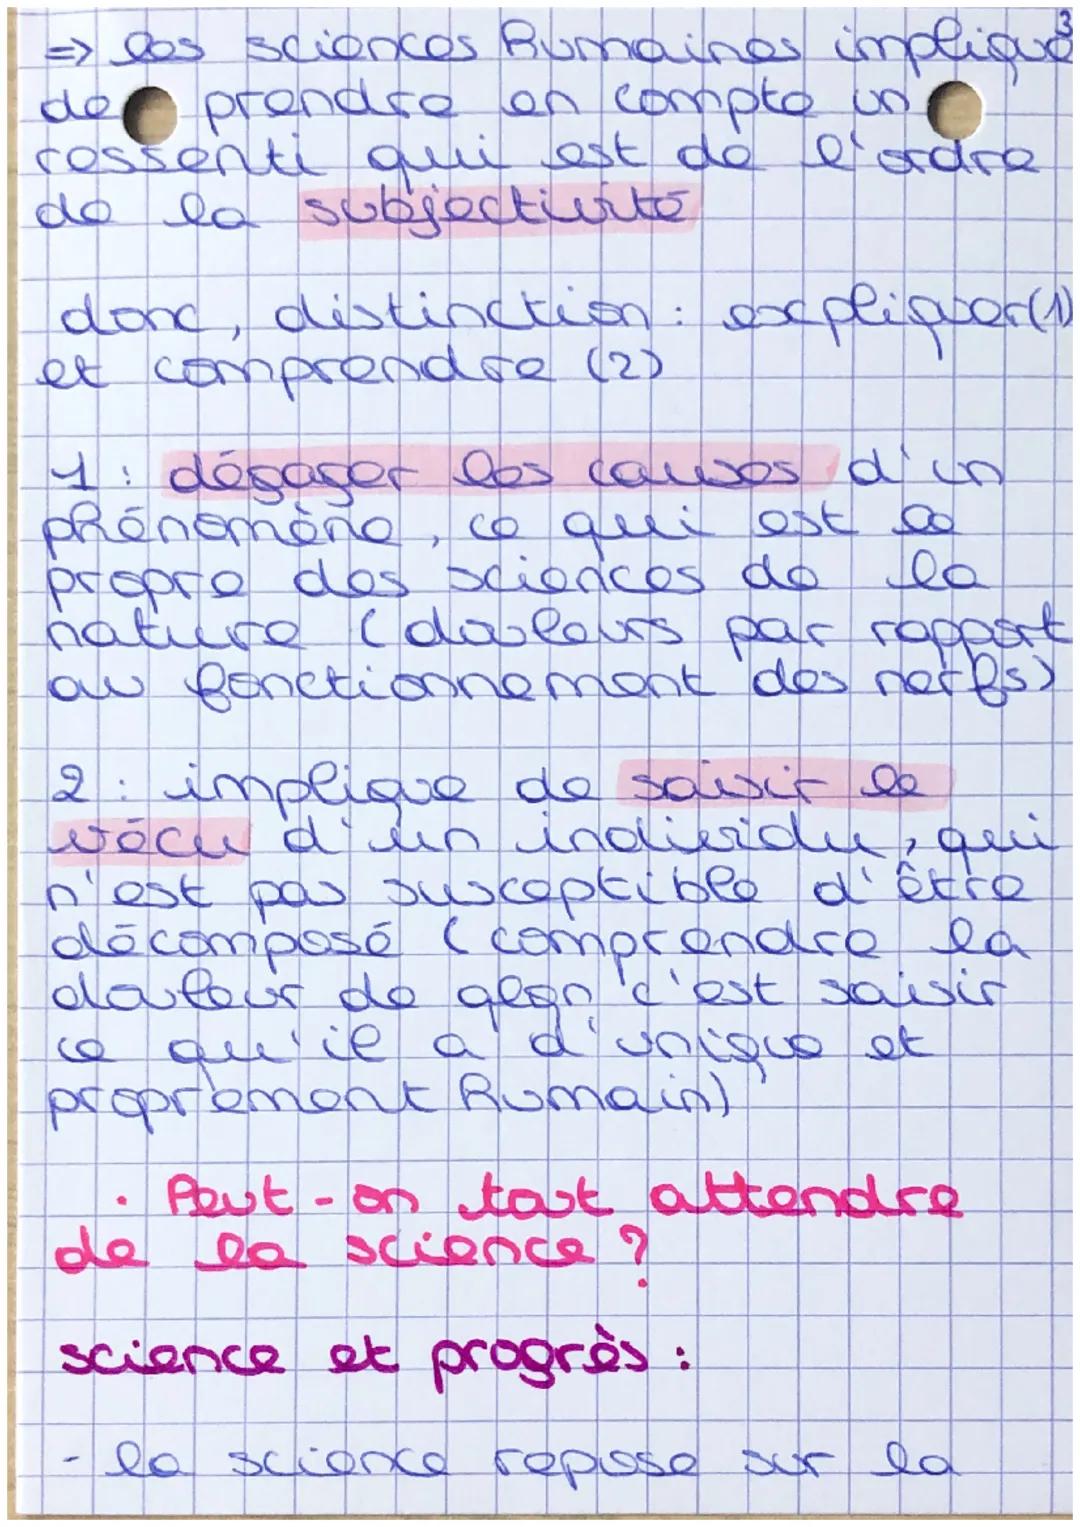 3
=> les sciences humaines implique
de prendre en compte un
ressenti qui est de l'ordre
de la subjectivité
donc, distinction : expliquer (1)
et comprendre (2)
1 : dégager les causes d'un
phénomène, ce qui est le
propre des sciences de la
nature (douleurs par rapport
au fonctionnement des nerfs)
2 : implique de saisir le
vécu d'un individu, qui
n'est pas susceptible d'être
décomposé (comprendre la
douleur de qlqn c'est saisir
ce qu'il a d'unique et
proprement humain)
. Peut-on tout attendre
de la science ?
science et progrès :
- la science repose sur la